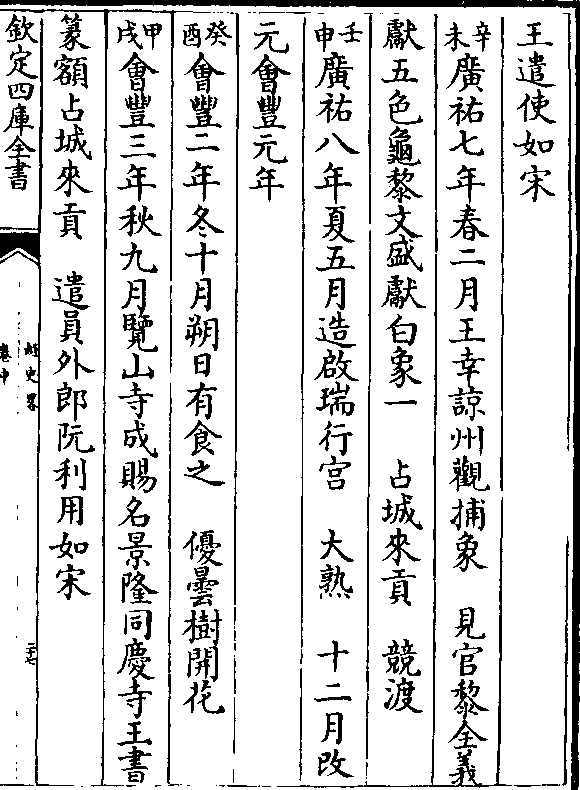 王遣使如宋
辛未廣祐七年春二月王幸諒州觀捕象　見官黎全義
獻五色龜黎文盛獻白象一　占城來貢　競渡
壬申廣祐八年夏五月造啟瑞行宮　大熟　十二月改
元會豐元年
癸酉會豐二年冬十月朔日有食之　優曇樹開花
甲戌會豐三年秋九月覽山寺成賜名景隆同慶寺王書
篆額占城來貢　遣員外郎阮利用如宋
欽定四庫全書
越史略
卷中
二十七